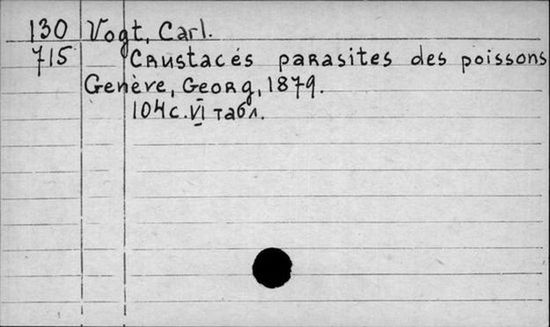 130 Vogt, Carl.
715 Crustacés parasites des poissons
Genève, Georg, 1879.
104 с. VI табл.